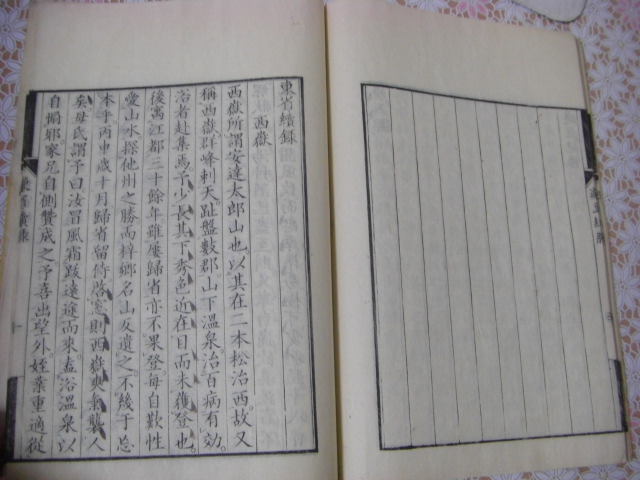 東省續錄
西嶽
西嶽所謂安達太郎山也以其在二本松治西。故又
稱西嶽群峰刺天趾盤數郡山下溫泉治百病有効。
浴者赴集焉予少長其下秀色近在目而未獲登也。
後寓江都三十餘年雖屢歸省亦不果登。每自歎性
愛山水探他州之勝而梓鄉名山反遺之。不幾于忘
本乎丙申歲十月歸省留侍啓窓則西嶽爽氣襲人
矣母氏謂予曰汝冒風霜跋遠途而來。盍浴溫泉以
自搨邪家兄自側贊成之予喜出望外。姪葦重適從
東省續錄
一